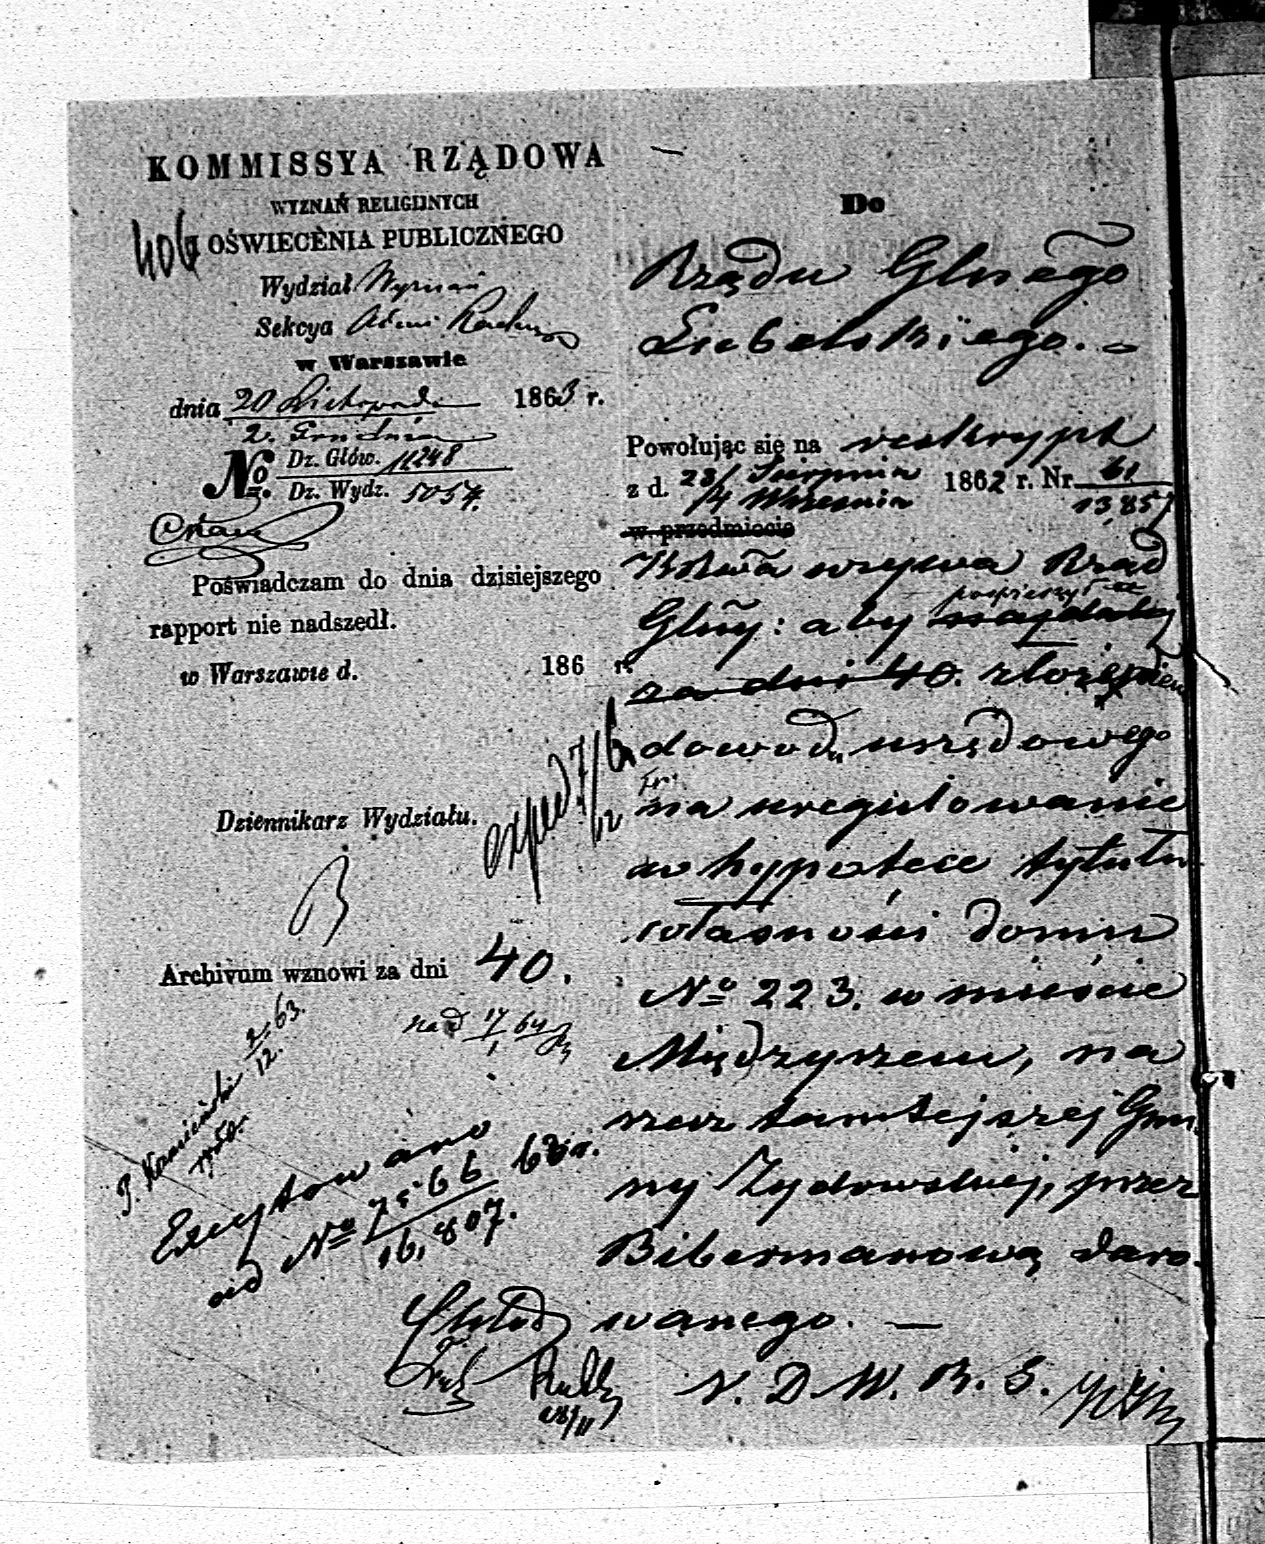 KOMMISSYA RZĄDOWA
WYZNAŃ RELIGIJNYCH
406 OŚWIECENIA PUBLICZNEGO
Wydział Wyznań
Sekcya
w Warszawie
dnia 20 Listopada 1863 r.
2. Grudnia
No. Dz. Głów. 11248
Dz. Wydz. 5054.
Poświadczam do dnia dzisiejszego
rapport nie nadszedł.
w Warszawie d. 186 r.
exped 7/12
Dziennikarz Wydziału.
Archivum wznowi za dni 40.
na d 17/1 64
2/12. 63.
Excytowano
od No 63 r.
16,807.
18/11
Do
Rządu Glnego
Lubelskiego.
Powołując się na reskrypt
z d. 23/ Sierpnia 1862 r. Nr. 61
/4 Września 13,857
w przedmiocie
wzywa Rząd
pospieszył ze
Glny: aby najdalej
za dni 40. złożeniem
dowodu urzędowego
na uregulowanie
w hypotece tytułu
własności domu
No 223. w mieście
Międzyrzecu, na
rzecz tamtejszej Gmi
ny Żydowskiej, przez
Bibermanową daro-
wanego. —